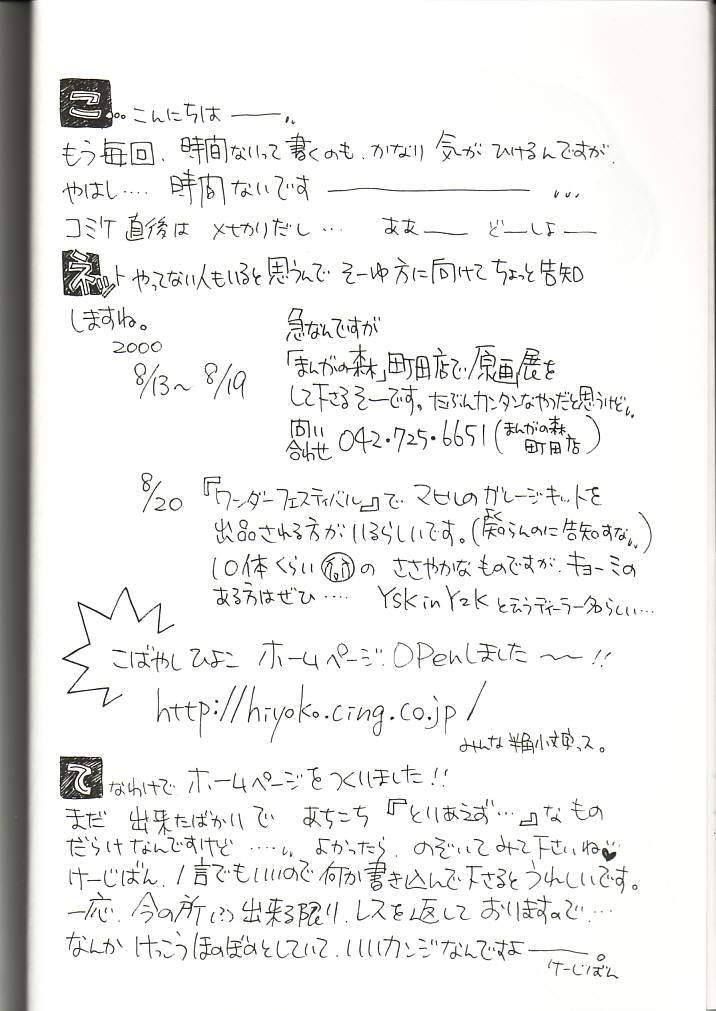 こ…こんにちは――…
もう毎回、時間ないって書くのも、かなり気がひけるんですが、
やはし‥‥時間ないです――――…
コミケ直後はメせカリだし…ああ――どーしよー
ネットやってない人もいると思うんでそーゆ方に向けてちょっと告知
しますね。
2000
8/13~8/19
急なんですが
「まんがの森」町田店で原画展を
して下さるそーです。たぶんカンタンなやつだと思うけど…
問い合わせ 042・725・6651(まんがの森町田店)
8/20 『ワンダーフェスティバル』でマヒルのガレージキットを
出品される方がいるらしいです。(よく知らんのに告知すな…)
10体くらいの ささやかなものですが、キョーミの
ある方はぜひ‥‥ YSK in Y2K と云うディーラー名らしい…
こばやしひよこ ホームページ OPenしました~~!!
http://hiyoko.cing.co.jp/
みんな半角小文字っス。
てなわけで ホームページをつくりました!!
まだ 出来たばかりで あちこち『とりあえず…』なもの
だらけなんですけど‥‥… よかったら、のぞいてみて下さいね♥
けーじばん、1言でもいいので何か書き込んで下さるとうれしいです。
一応、今の所は出来る限り、レスを返しておりますので、…
なんか けっこうほのぼのとしていて、いいカンジなんですよ――。
けーじばん